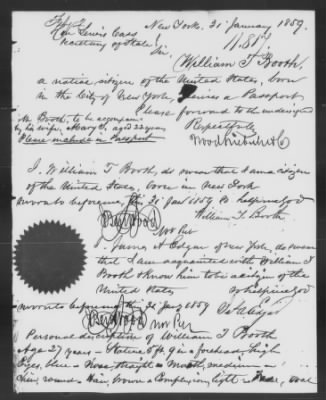 New York, 31 January 1859.
Hon Lewis Cass
Secretary of State!
Sir,
William T Booth,
a native citizen of the United States, born
in the City of New York, desires a Passport
Please forward to the undersigned
Mr Booth, to be accompanied
by his wife, Mary S, aged 22 years
Please include in Passport
Respectfully
I, William T Booth, do swear that I am a citizen
of the United States, born in New York
sworn to before me, this 31 Jany 1859 So help me God
William T. Booth
Not Pub
I, James A Edgar of New York, do swear
that I am acquainted with William T
Booth & know him to be a citizen of the
United States so help me God
sworn to before me this 31 Jany 1859
Jas A Edgar
Not Pub
Personal description of William T Booth
Age 27 years — Stature, 5 ft, 9 in — forehead, high
Eyes, blue — Nose, straight — Mouth, medium —
Chin, round — Hair, brown — Complexion, light — Face, oval